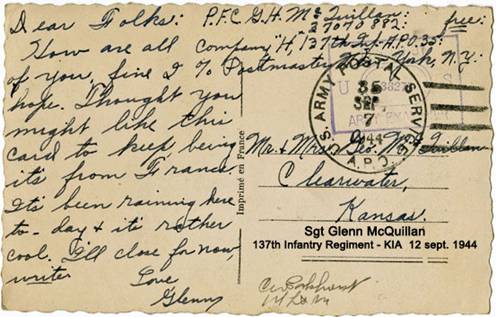 Dear Folks:
How are all
of you, fine I
hope. Thought you
might like this
card to keep being
it's from France.
It's been raining here
to-day & it's rather
cool. I'll close for now,
writer Love,
Glenn
P.F.C. G.H. McQuillan: free:
37070882.
Company "H", 137th Inf. A.P.O. 35:
% Postmaster York, N.Y.
U.S. ARMY POSTAL SERVICE
35
SEP
7
1944
A.P.O.
ARMY EXAMINER
Mr. & Mrs. Geo. Mc Quillan
Clearwater,
Kansas.
Imprimé en France
Sgt Glenn McQuillan
137th Infantry Regiment - KIA 12 sept. 1944